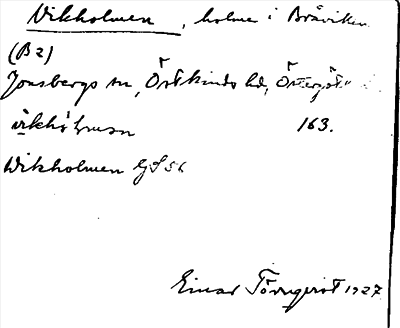 Vikholmen, holme i Bråviken
(B 2)
Jonsbergs sn, Östkinds hd, Östergöt.
vikhòlmen 163.
Wikholmen GS 56
Einar Törnqvist 1927